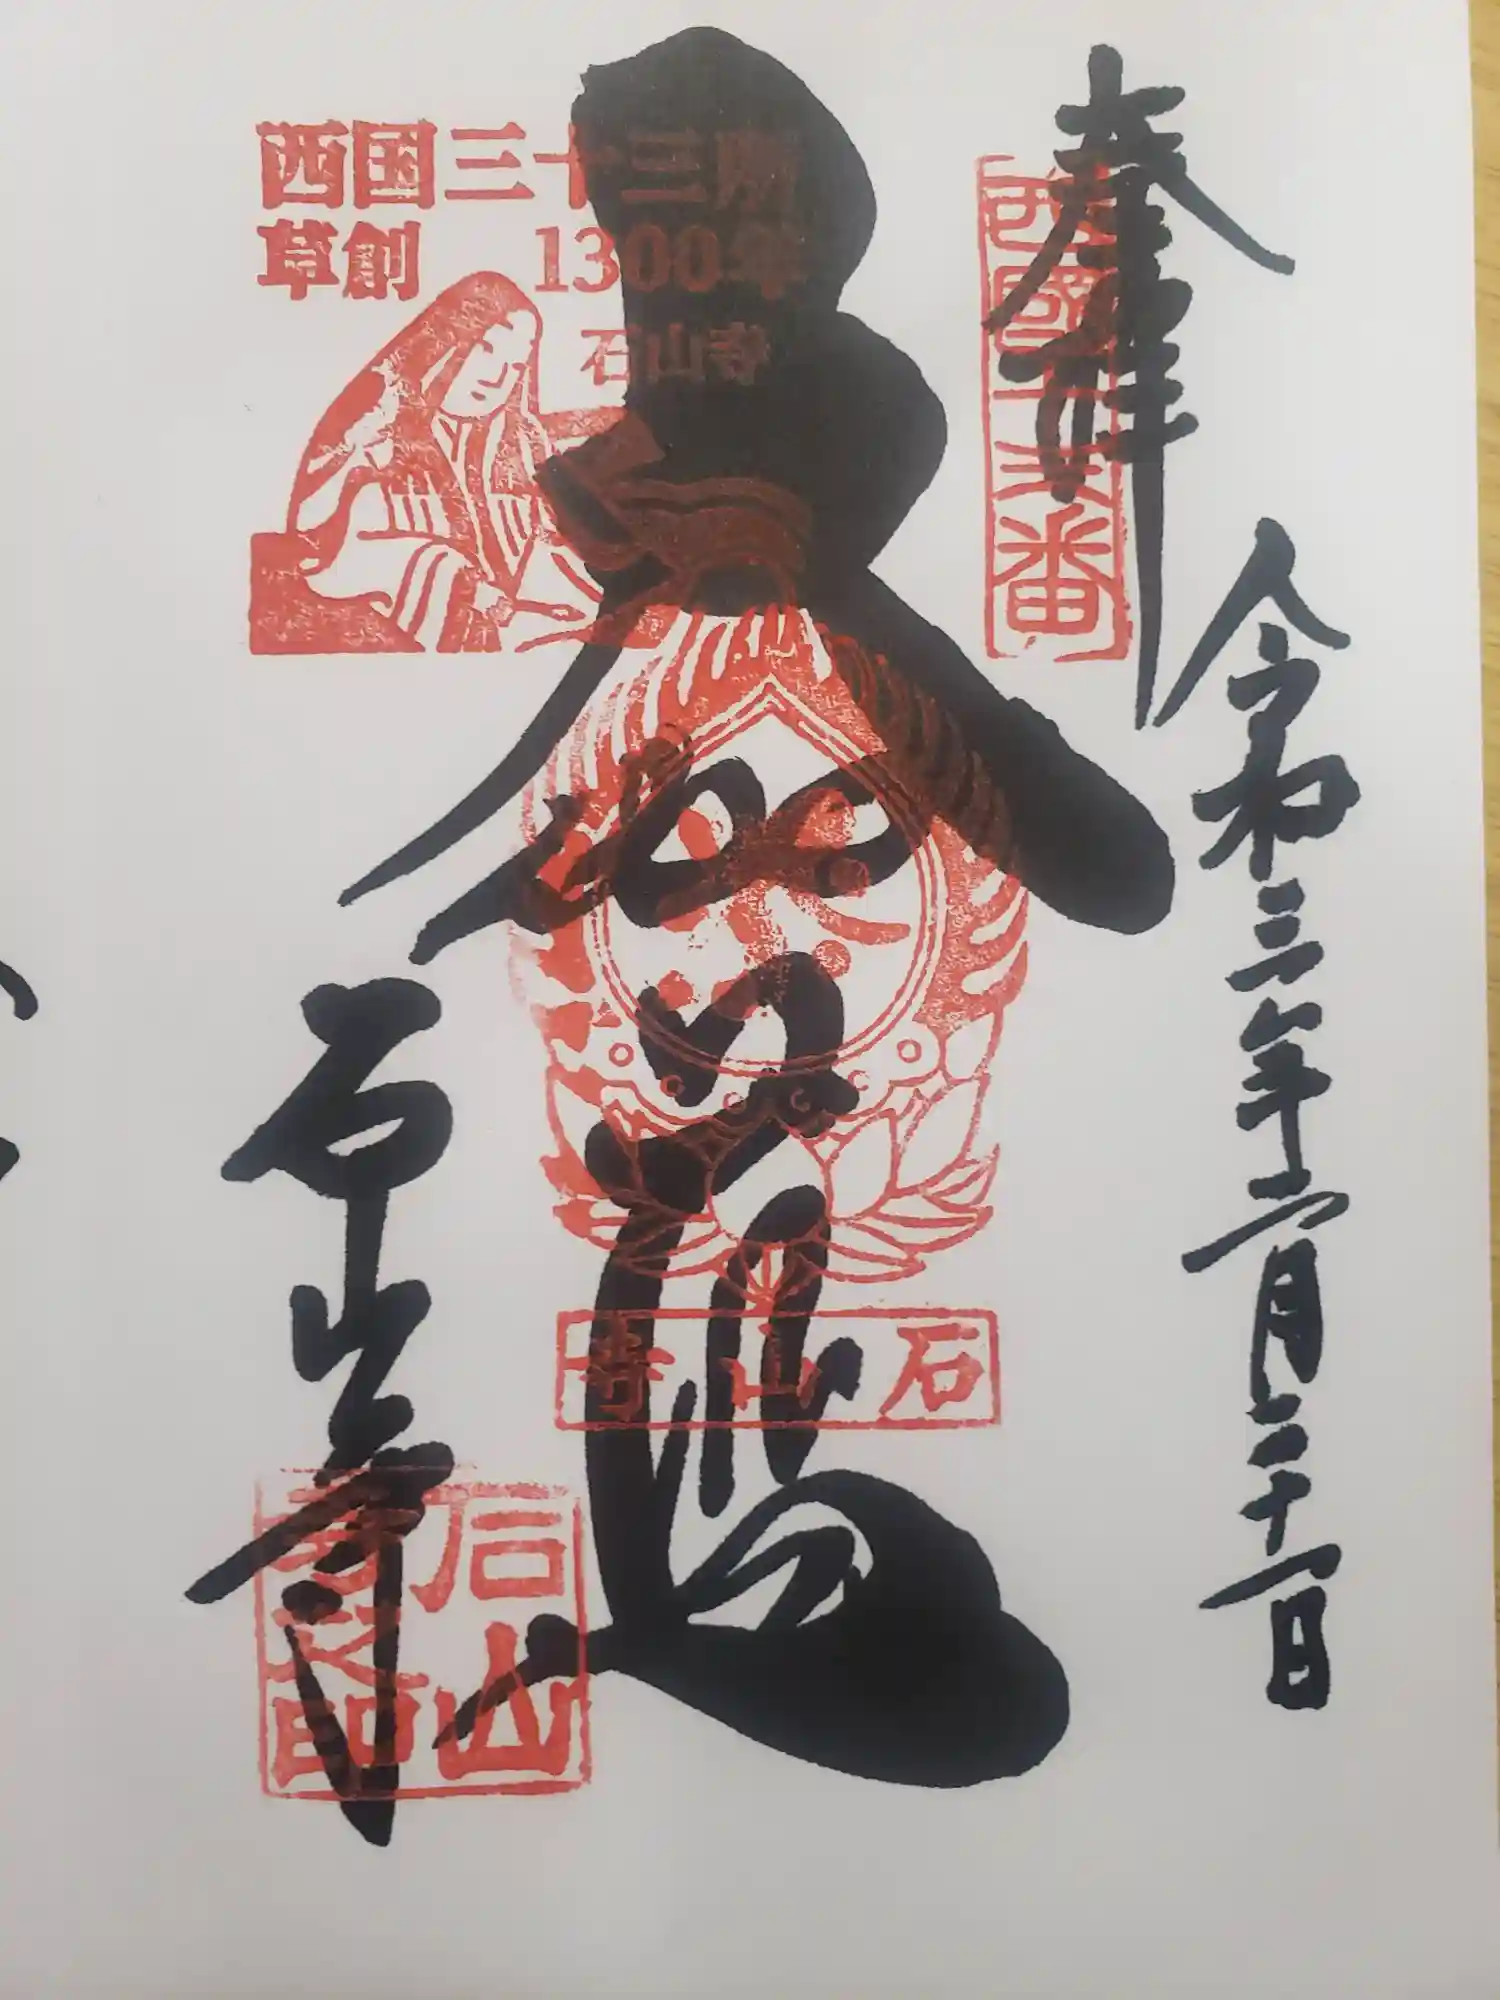 奉拝
西國十三番
令和三年二月二十一日
大伽藍
西国三十三所
草創 1300年
石山寺
石山寺
石山寺
石山寺之印